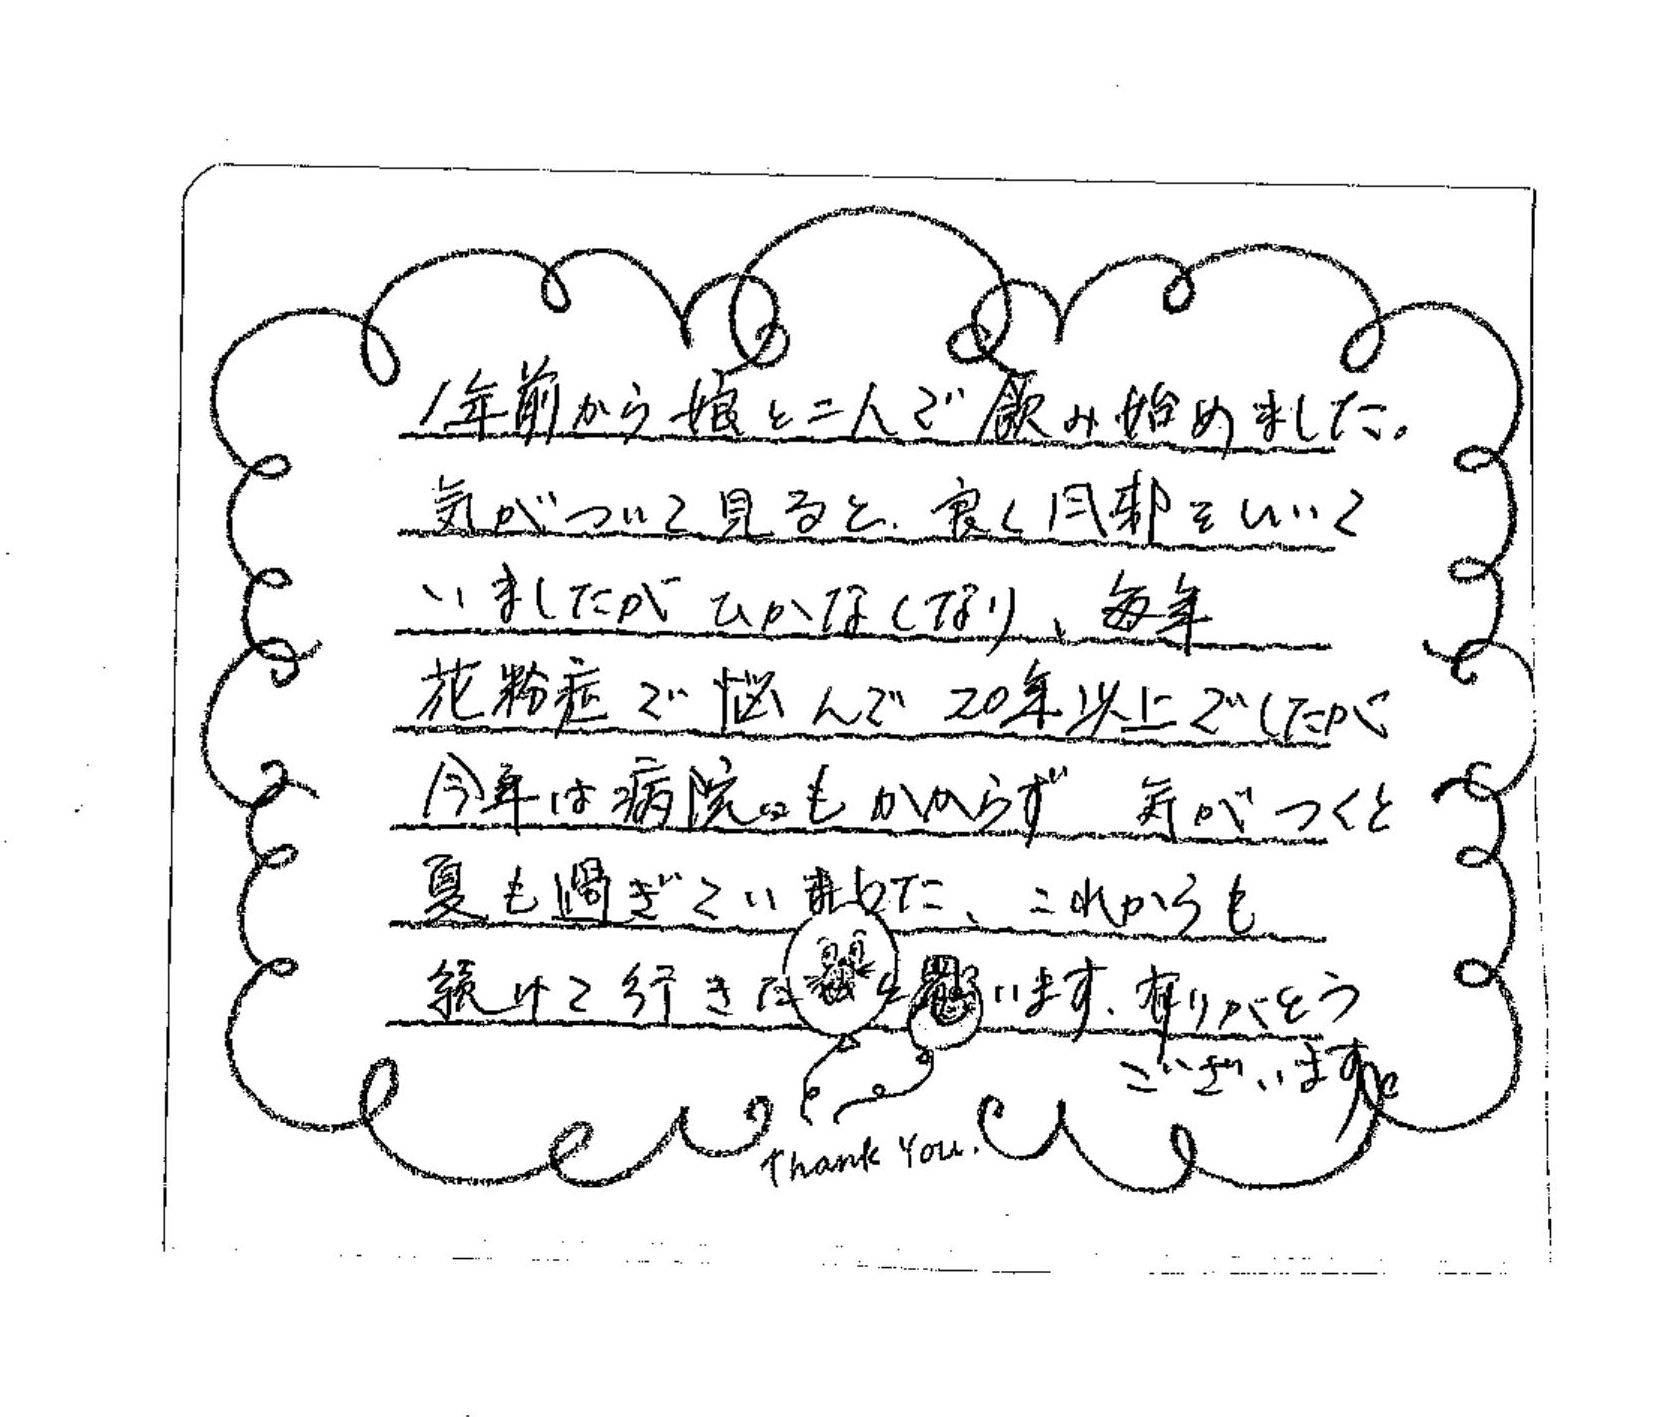 1年前から娘と二人で飲み始めました。
気がついて見ると、良く風邪をひいて
いましたがひかなくなり、毎年
花粉症で悩んで20年以上でしたが
今年は病院にもかからず 気がつくと
夏も過ぎていました、これからも
続けて行きたいと思います、有りがとう
ございます
Thank You.